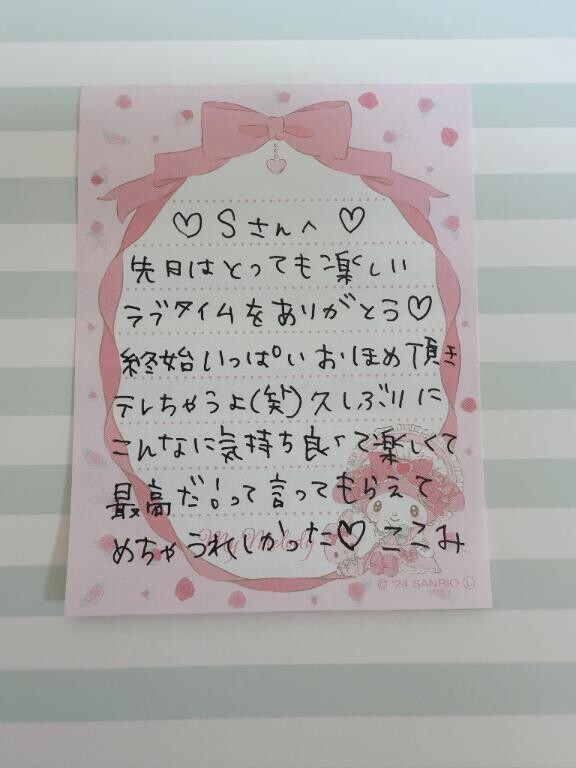 ♡ Sさんへ ♡
先日はとっても楽しい
ラブタイムをありがとう♡
終始いっぱいおほめ頂き
テレちゃうよ(笑)久しぶりに
こんなに気持ち良くて楽しくて
最高だ!って言ってもらえて
めちゃうれしかった♡ ここみ
My Melody
© '24 SANRIO Ⓛ